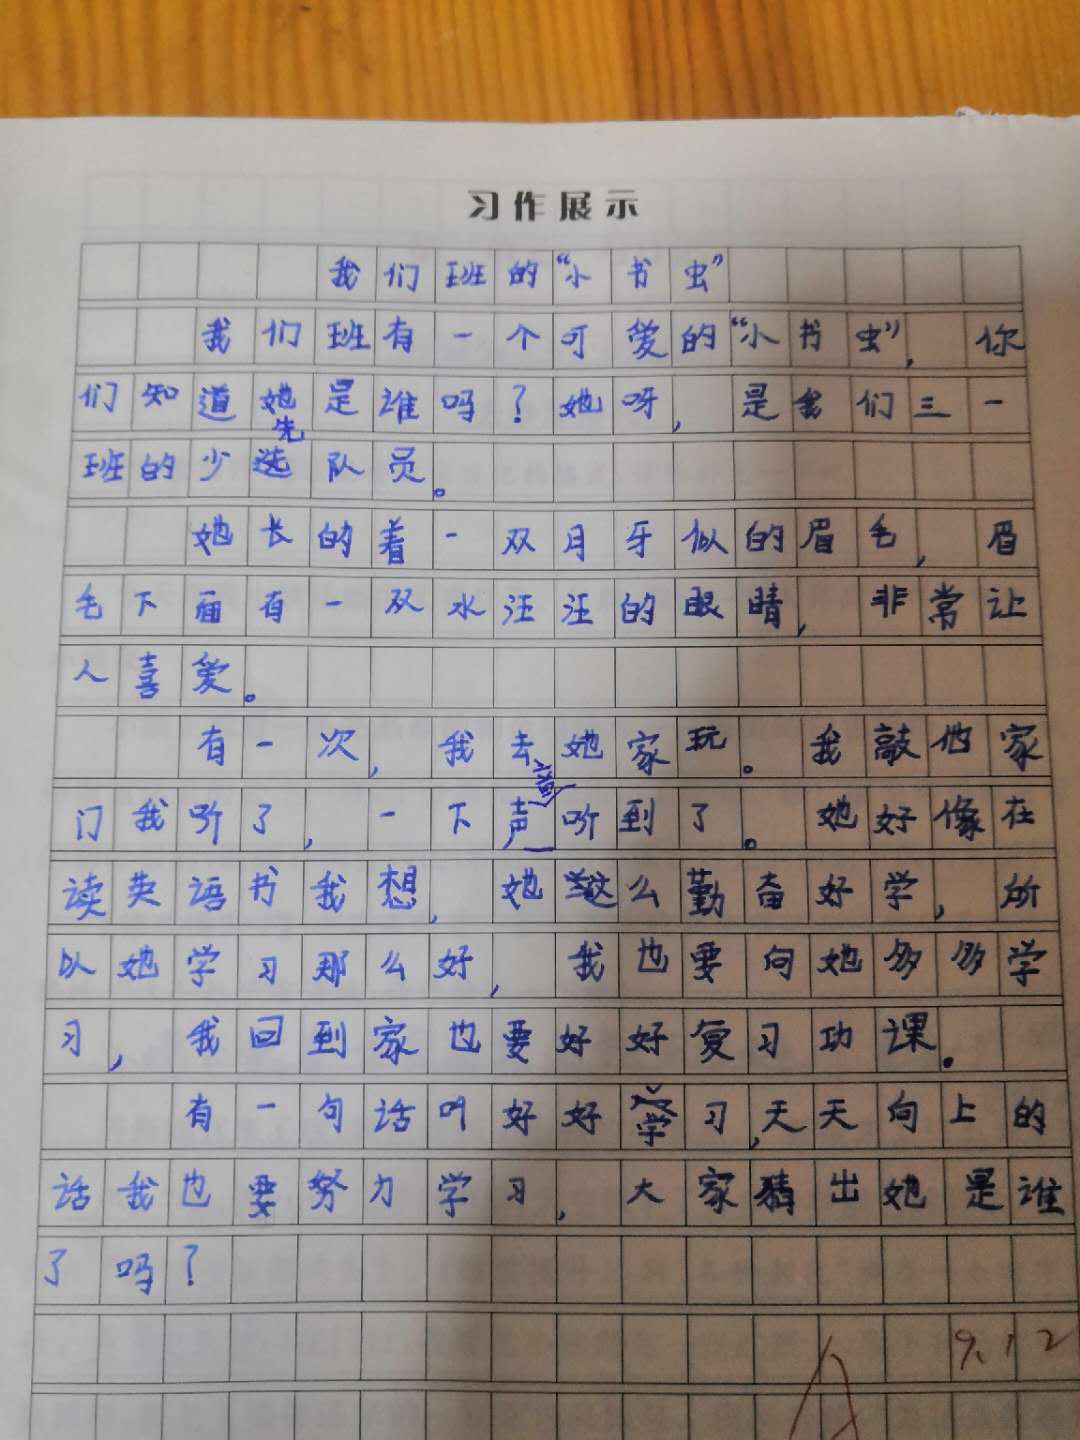 习作展示
我们班的“小书虫”
我们班有一个可爱的“小书虫”，你
们知道她是谁吗？她呀，是我们三一
先
班的少选队员。
她长的着一双月牙似的眉毛，眉
毛下面有一双水汪汪的眼睛，非常让
人喜爱。
有一次，我去她家玩。我敲他家
音
门我听了，一下声听到了。她好像在
读英语书我想，她这么勤奋好学，所
以她学习那么好，我也要向她多多学
习，我回到家也要好好复习功课。
有一句话叫好好学习，天天向上的
话我也要努力学习，大家猜出她是谁
了吗？
9.12